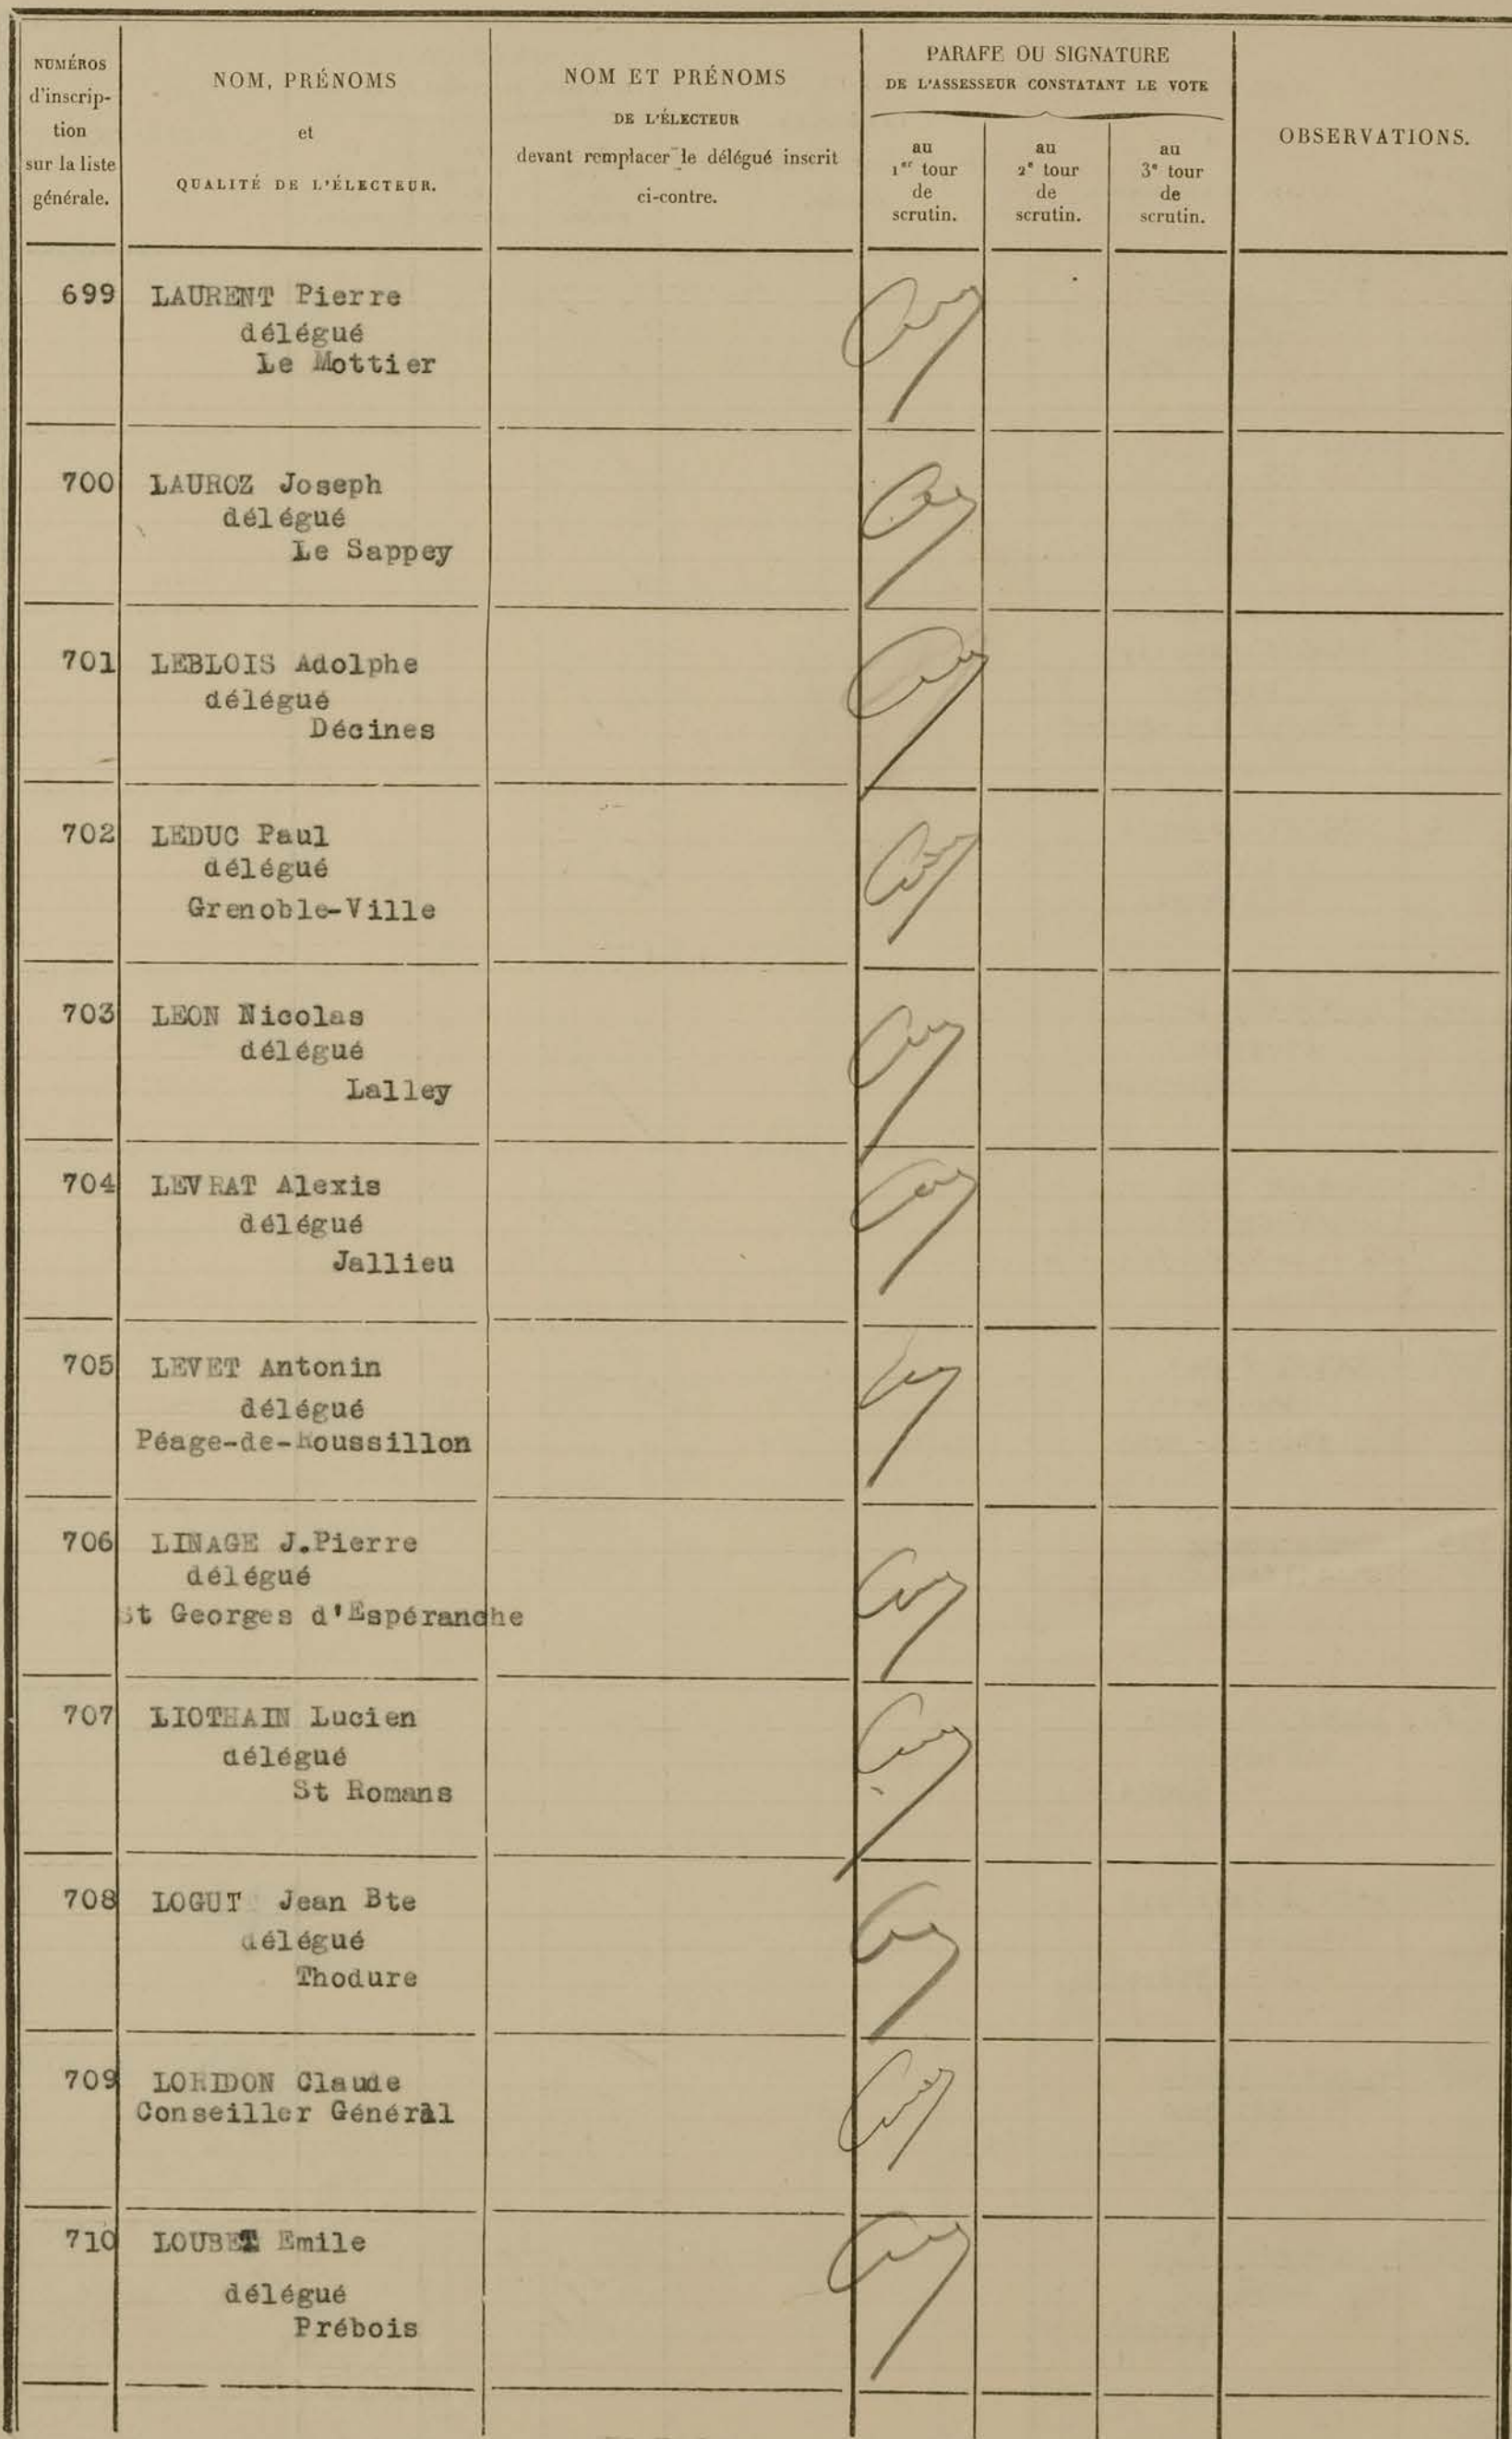 NUMÉROS
d'inscrip-
tion
sur la liste
générale.
NOM, PRÉNOMS
et
QUALITÉ DE L'ÉLECTEUR.
NOM ET PRÉNOMS
DE L'ÉLECTEUR
devant remplacer le délégué inscrit
ci-contre.
PARAFE OU SIGNATURE
DE L'ASSESSEUR CONSTATANT LE VOTE
au
1er tour
de
scrutin.
au
2e tour
de
scrutin.
au
3e tour
de
scrutin.
OBSERVATIONS.
699 LAURENT Pierre
délégué
Le Mottier
700 LAUROZ Joseph
délégué
Le Sappey
701 LEBLOIS Adolphe
délégué
Décines
702 LEDUC Paul
délégué
Grenoble-Ville
703 LEON Nicolas
délégué
Lalley
704 LEVRAT Alexis
délégué
Jallieu
705 LEVET Antonin
délégué
Péage-de-Roussillon
706 LINAGE J.Pierre
délégué
St Georges d'Espéranche
707 LIOTHAIN Lucien
délégué
St Romans
708 LOGUT Jean Bte
délégué
Thodure
709 LORIDON Claude
Conseiller Général
710 LOUBET Emile
délégué
Prébois